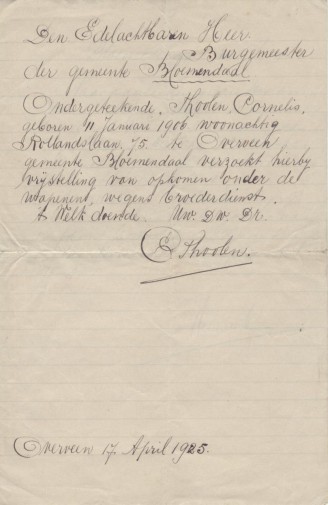 Den Edelachtbaren Heer
Burgemeester
der gemeente Bloemendaal
Ondergeteekende, Thoolen, Cornelis,
geboren 11 Januarie 1906 woonachtig
Rollandslaan, 75. te Overveen
gemeente Bloemendaal verzoekt hierby
vrystelling van opkomen onder de
wapenen, wegens broederdienst.
't Welk doende. Uw. Dw. Dr.
C Thoolen.
Overveen 17 April 1925.